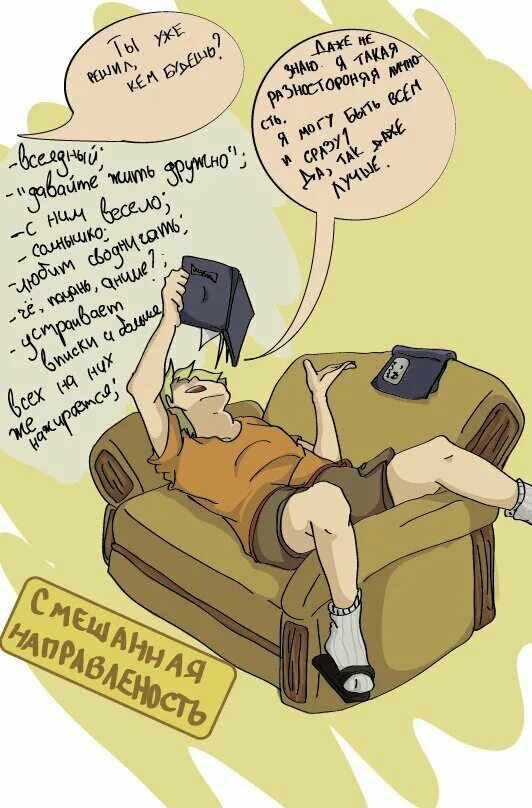 Ты уже
решил,
кем будешь?
Даже не
знаю. Я такая
разностороняя лично-
сть.
Я могу быть всем
и сразу!
Да, так даже
лучше.
-всеядный;
-"давайте жить дружно";
-с ним весело;
-солнышко;
-любит сводничать;
-чё, пацань, аниме?;
-устраивает
вписки и больше
всех на них
же нажирается;
Смешанная
направленость